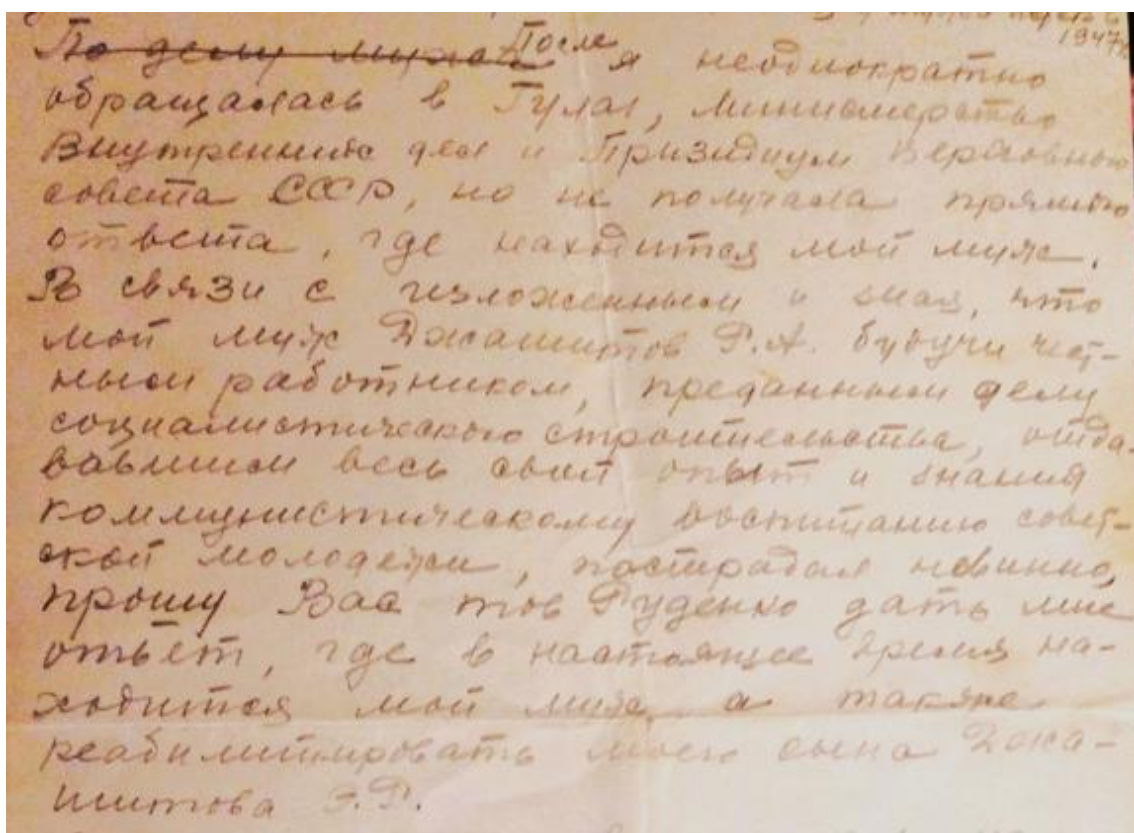 По делу мужа После я неоднократно
1947
обращалась в Гулаг, Министерство
Внутренних дел и Призидиум Верховного
совета СССР, но не получала прямого
ответа, где находится мой муж.
В связи с изложенным и зная, что
мой муж Джашитов Р.А. будучи чест-
ным работником, преданным делу
социалистического строительства, отда-
вавшим весь свой опыт и знания
коммунистическому воспитанию совет-
ской молодежи, пострадал невинно,
прошу Вас тов Руденко дать мне
ответ, где в настоящее время на-
ходится мой муж, а также
реабилитировать моего сына Джа-
шитова Э.Р.